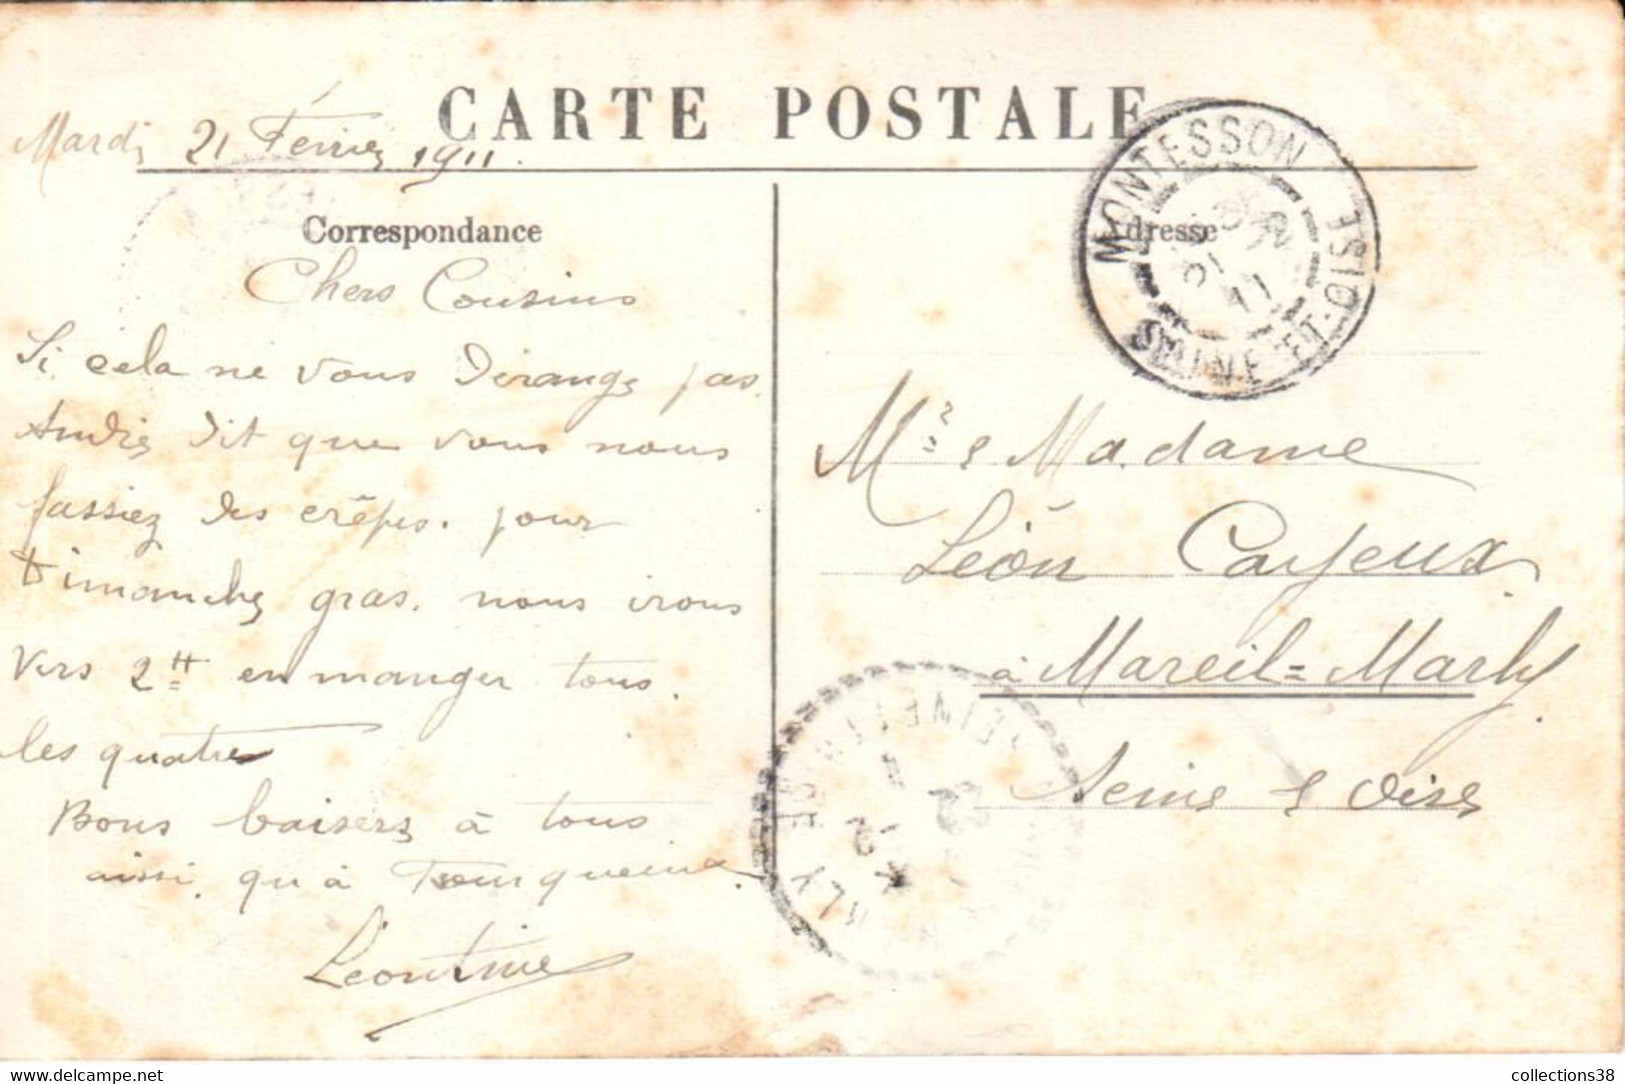 CARTE POSTALE
Mardi 21 Février 1911.
Correspondance
Chers Cousins
Si cela ne vous dérange pas.
André dit que vous nous
fassiez des crêpes. pour
Dimanche gras. nous irons
Vers 2 en manger tous.
les quatre
Bons baisers à tous
aussi. qu'à
Léontine
Adresse
MONTESSON
SEINE-ET-OISE
21
11
Mr & Madame
Léon Cayeux
à Mareil=Marly
Seine & Oise
collections38